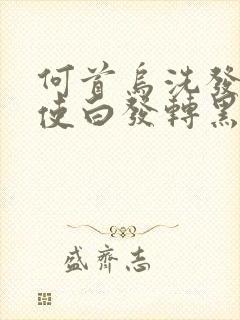 何首烏洗發
使白發轉黑
盛齊志